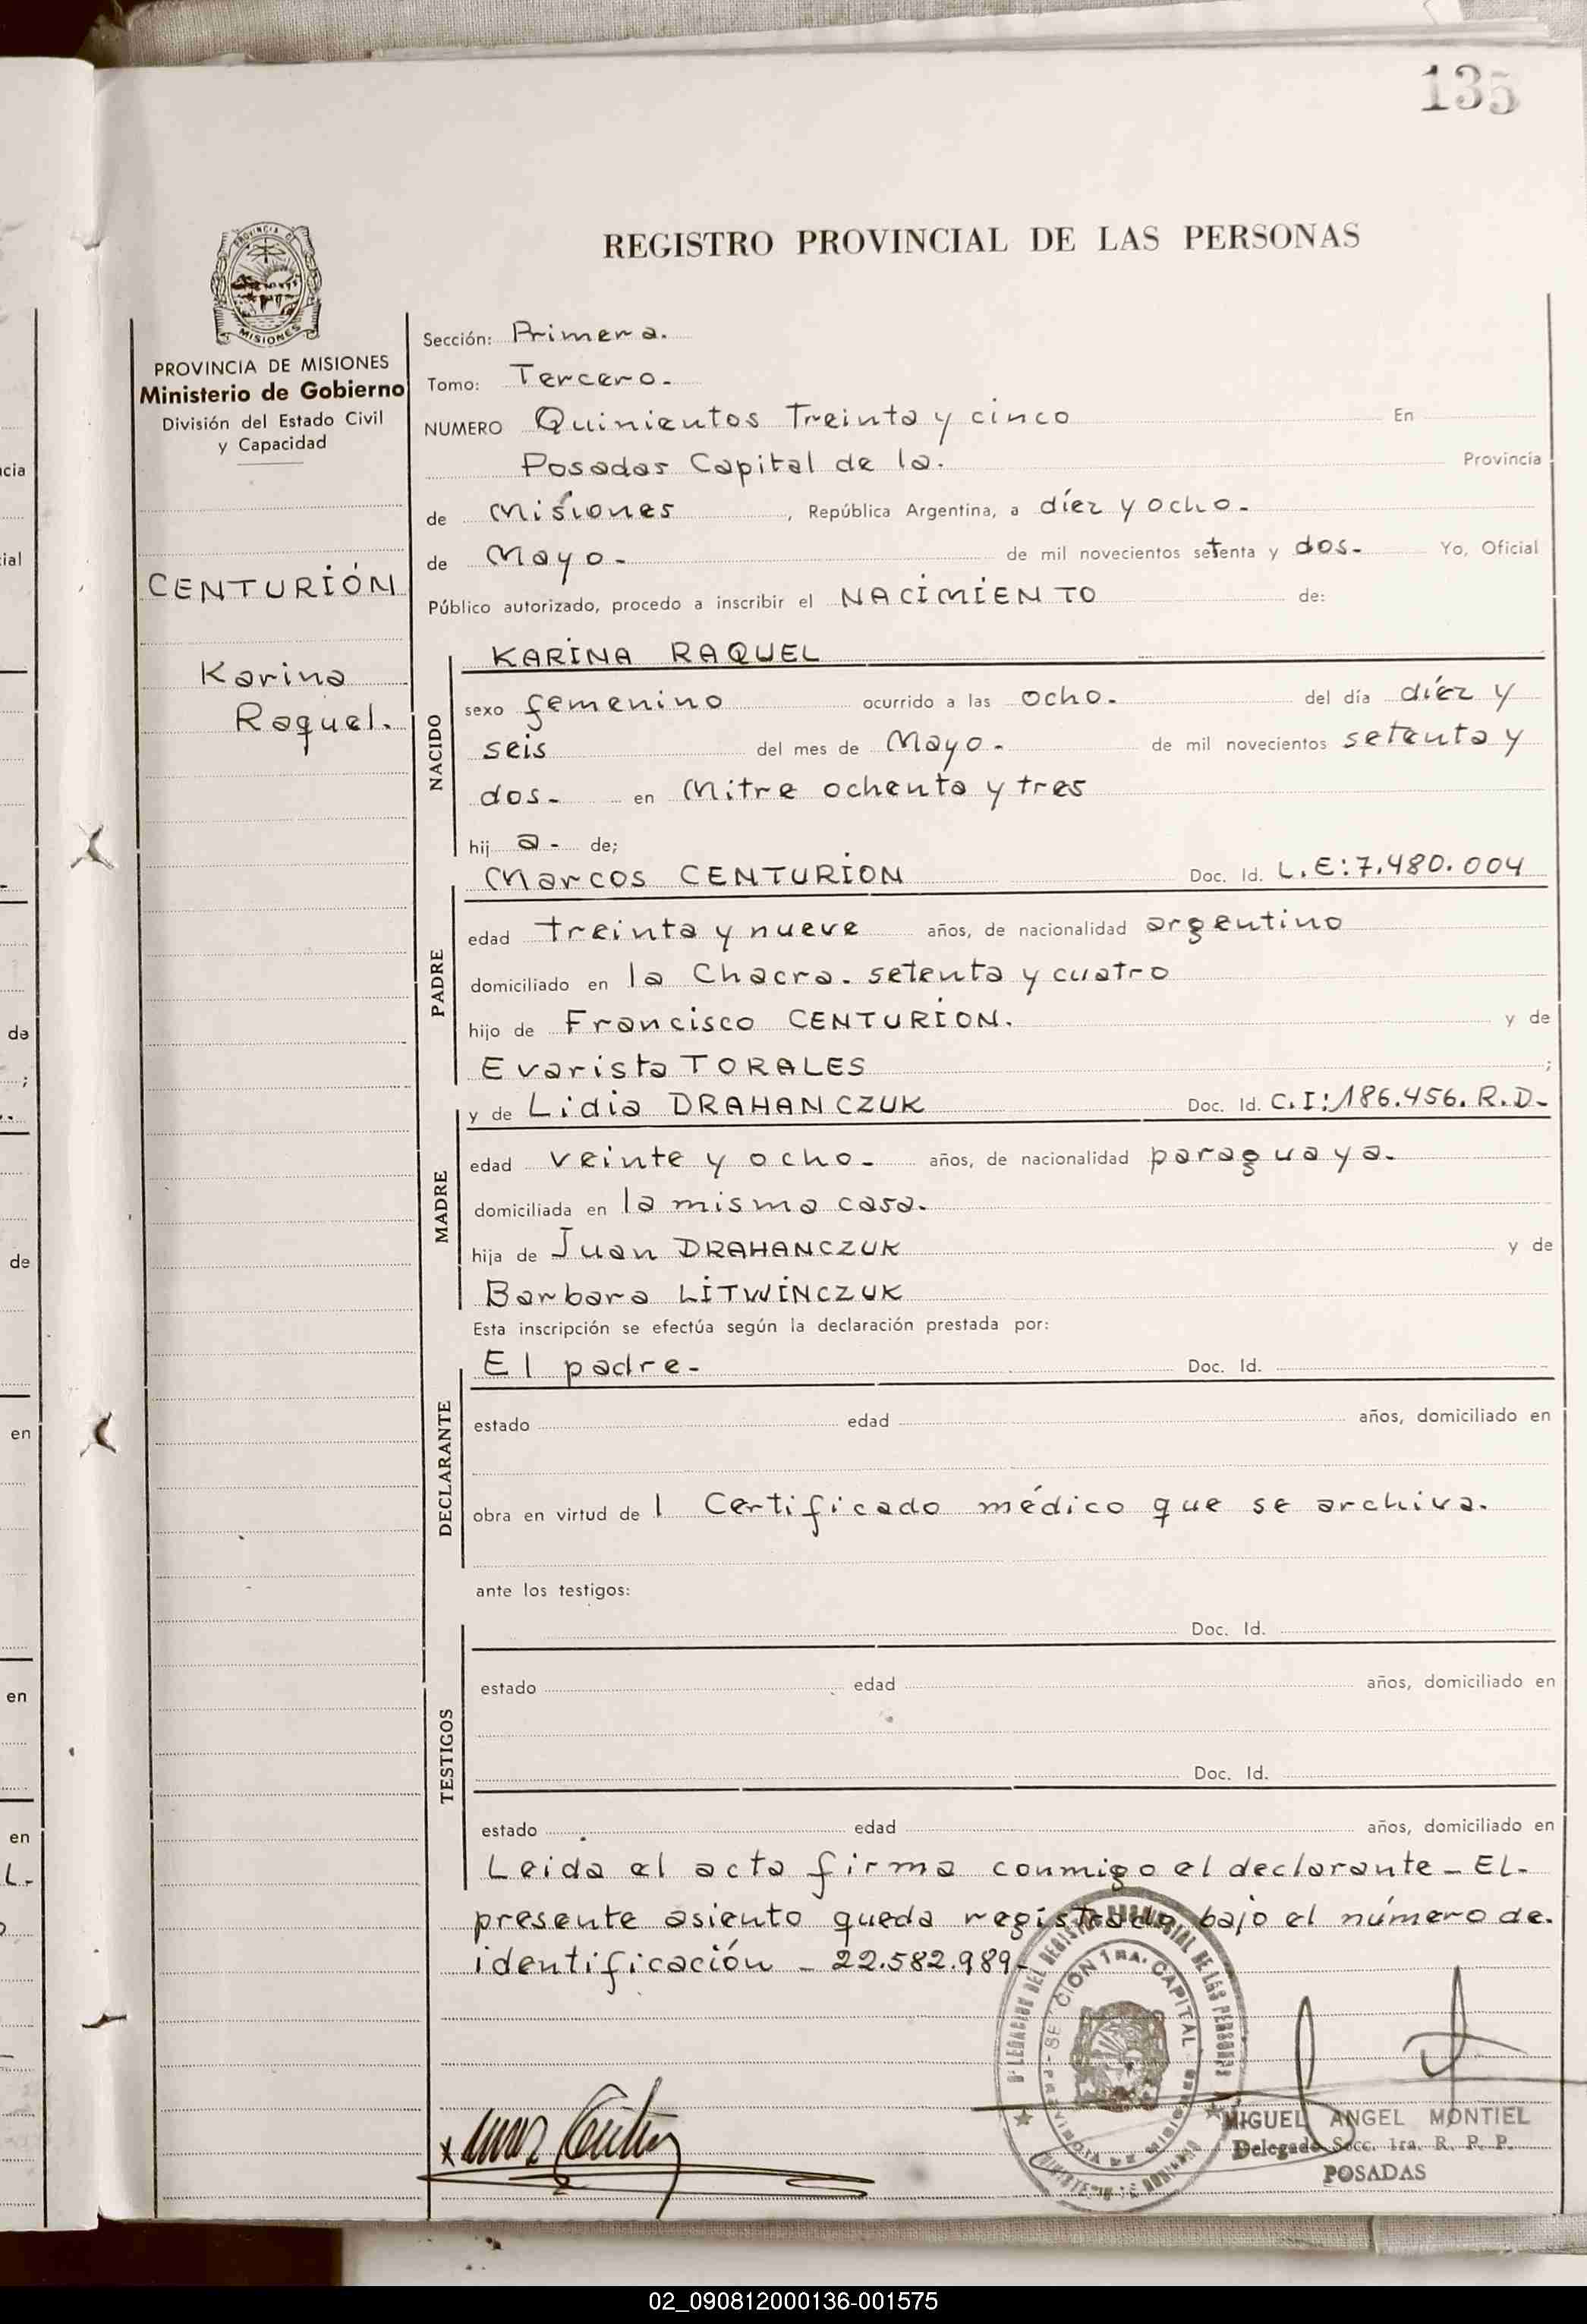 135
REGISTRO PROVINCIAL DE LAS PERSONAS
PROVINCIA DE MISIONES
Ministerio de Gobierno
División del Estado Civil
y Capacidad
CENTURIÓN
Karina
Raquel.
Sección: Primera.
Tomo: Tercero.
NUMERO Quinientos Treinta y cinco En
Posadas Capital de la. Provincia
de Misiones, República Argentina, a díez y ocho.
de Mayo. de mil novecientos setenta y dos. Yo, Oficial
Público autorizado, procedo a inscribir el NACIMIENTO de:
NACIDO
KARINA RAQUEL
sexo femenino ocurrido a las ocho. del día díez y
seis del mes de Mayo. de mil novecientos setenta y
dos. en Mitre ochenta y tres
hij a. de;
PADRE
Marcos CENTURION Doc. Id. L.E:7.480.004
edad treinta y nueve años, de nacionalidad argentino
domiciliado en la Chacra. setenta y cuatro
hijo de Francisco CENTURION. y de
Evarista TORALES ;
MADRE
y de Lidia DRAHANCZUK Doc. Id. C.I:186.456. R.D.
edad veinte y ocho. años, de nacionalidad paraguaya.
domiciliada en la misma casa.
hija de Juan DRAHANCZUK y de
Barbara LITWINCZUK
Esta inscripción se efectúa según la declaración prestada por:
DECLARANTE
El padre. Doc. Id.
estado edad años, domiciliado en
obra en virtud de 1 Certificado médico que se archiva.
ante los testigos:
TESTIGOS
Doc. Id.
estado edad años, domiciliado en
Doc. Id.
estado edad años, domiciliado en
Leida el acta firma conmigo el declarante - EL.
presente asiento queda registrado bajo el número de.
identificación - 22.582.989-
SECCIÓN 1RA. CAPITAL
MIGUEL ANGEL MONTIEL
Delegado Secc. 1ra. R. P. P.
POSADAS
02_090812000136-001575